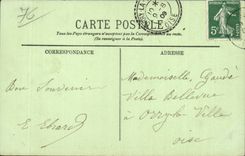 76
CARTE POSTALE
Tous les Pays étrangers n'acceptent pas la Correspondance au recto.
(Se renseigner à la Poste).
CORRESPONDANCE
ADRESSE
OISE
5c
Bon Souvenir
E Ehrard
Mademoiselle Gauda
Villa Bellevue
à Orry la Ville
Oise